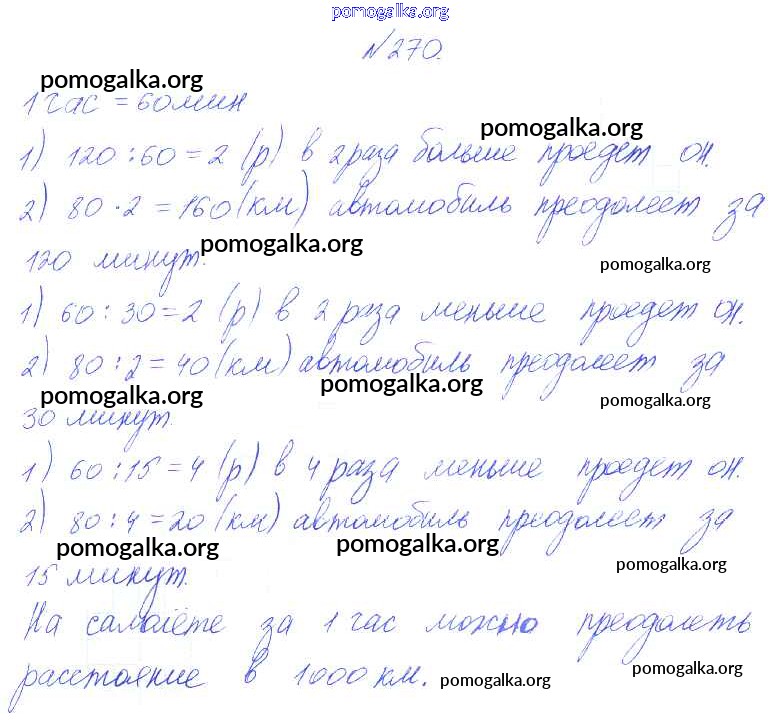 pomogalka.org
№270.
pomogalka.org
1 час = 60 мин
pomogalka.org
1) 120 : 60 = 2 (р) в 2 раза больше проедет он.
2) 80 · 2 = 160 (км) автомобиль преодолеет за
pomogalka.org
120 минут.
pomogalka.org
1) 60 : 30 = 2 (р) в 2 раза меньше проедет он.
2) 80 : 2 = 40 (км) автомобиль преодолеет за
pomogalka.org pomogalka.org pomogalka.org
30 минут.
1) 60 : 15 = 4 (р) в 4 раза меньше проедет он.
2) 80 : 4 = 20 (км) автомобиль преодолеет за
pomogalka.org pomogalka.org pomogalka.org
15 минут.
На самолёте за 1 час можно преодолеть
расстояние в 1000 км. pomogalka.org pomogalka.org